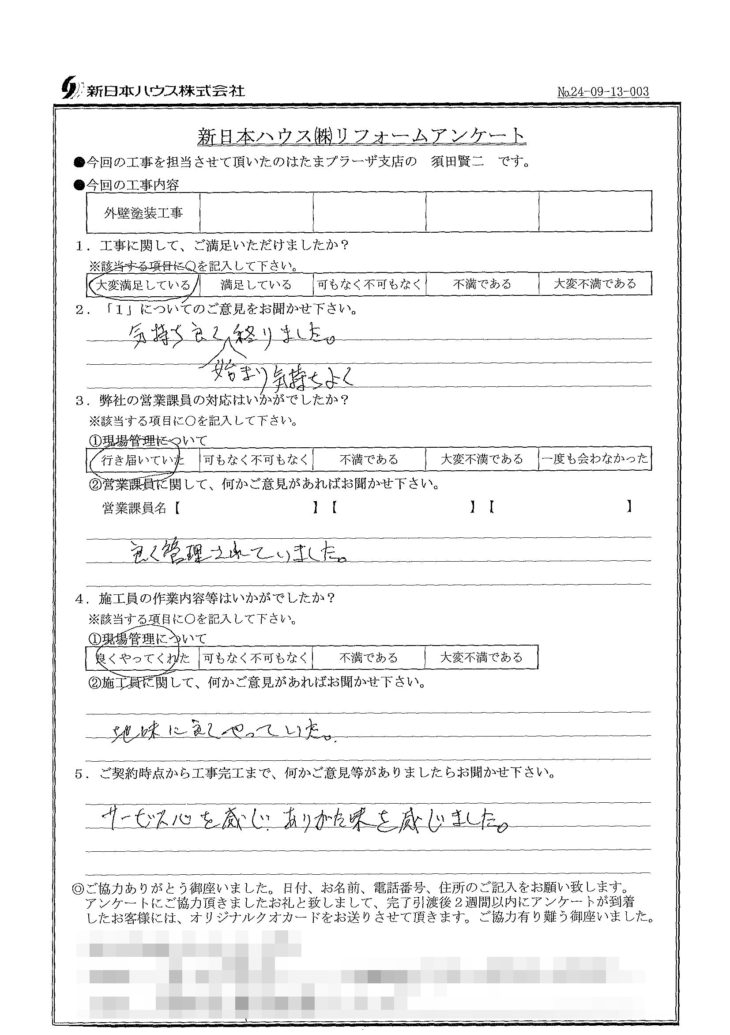 新日本ハウス株式会社
№24-09-13-003
新日本ハウス㈱リフォームアンケート
●今回の工事を担当させて頂いたのはたまプラーザ支店の 須田賢二 です。
●今回の工事内容
外壁塗装工事
1．工事に関して、ご満足いただけましたか？
※該当する項目に○を記入して下さい。
大変満足している 満足している 可もなく不可もなく 不満である 大変不満である
2．「1」についてのご意見をお聞かせ下さい。
気持ち良く終りました。
始まり気持ちよく
3．弊社の営業課員の対応はいかがでしたか？
※該当する項目に○を記入して下さい。
①現場管理について
行き届いていた 可もなく不可もなく 不満である 大変不満である 一度も会わなかった
②営業課員に関して、何かご意見があればお聞かせ下さい。
営業課員名【 】【 】【 】
良く管理されていました。
4．施工員の作業内容等はいかがでしたか？
※該当する項目に○を記入して下さい。
①現場管理について
良くやってくれた 可もなく不可もなく 不満である 大変不満である
②施工員に関して、何かご意見があればお聞かせ下さい。
地味に良くやっていた。
5．ご契約時点から工事完工まで、何かご意見等がありましたらお聞かせ下さい。
サービス心を感じ、ありがた味を感じました。
◎ご協力ありがとう御座いました。日付、お名前、電話番号、住所のご記入をお願い致します。
アンケートにご協力頂きましたお礼と致しまして、完了引渡後2週間以内にアンケートが到着
したお客様には、オリジナルクオカードをお送りさせて頂きます。ご協力有り難う御座いました。